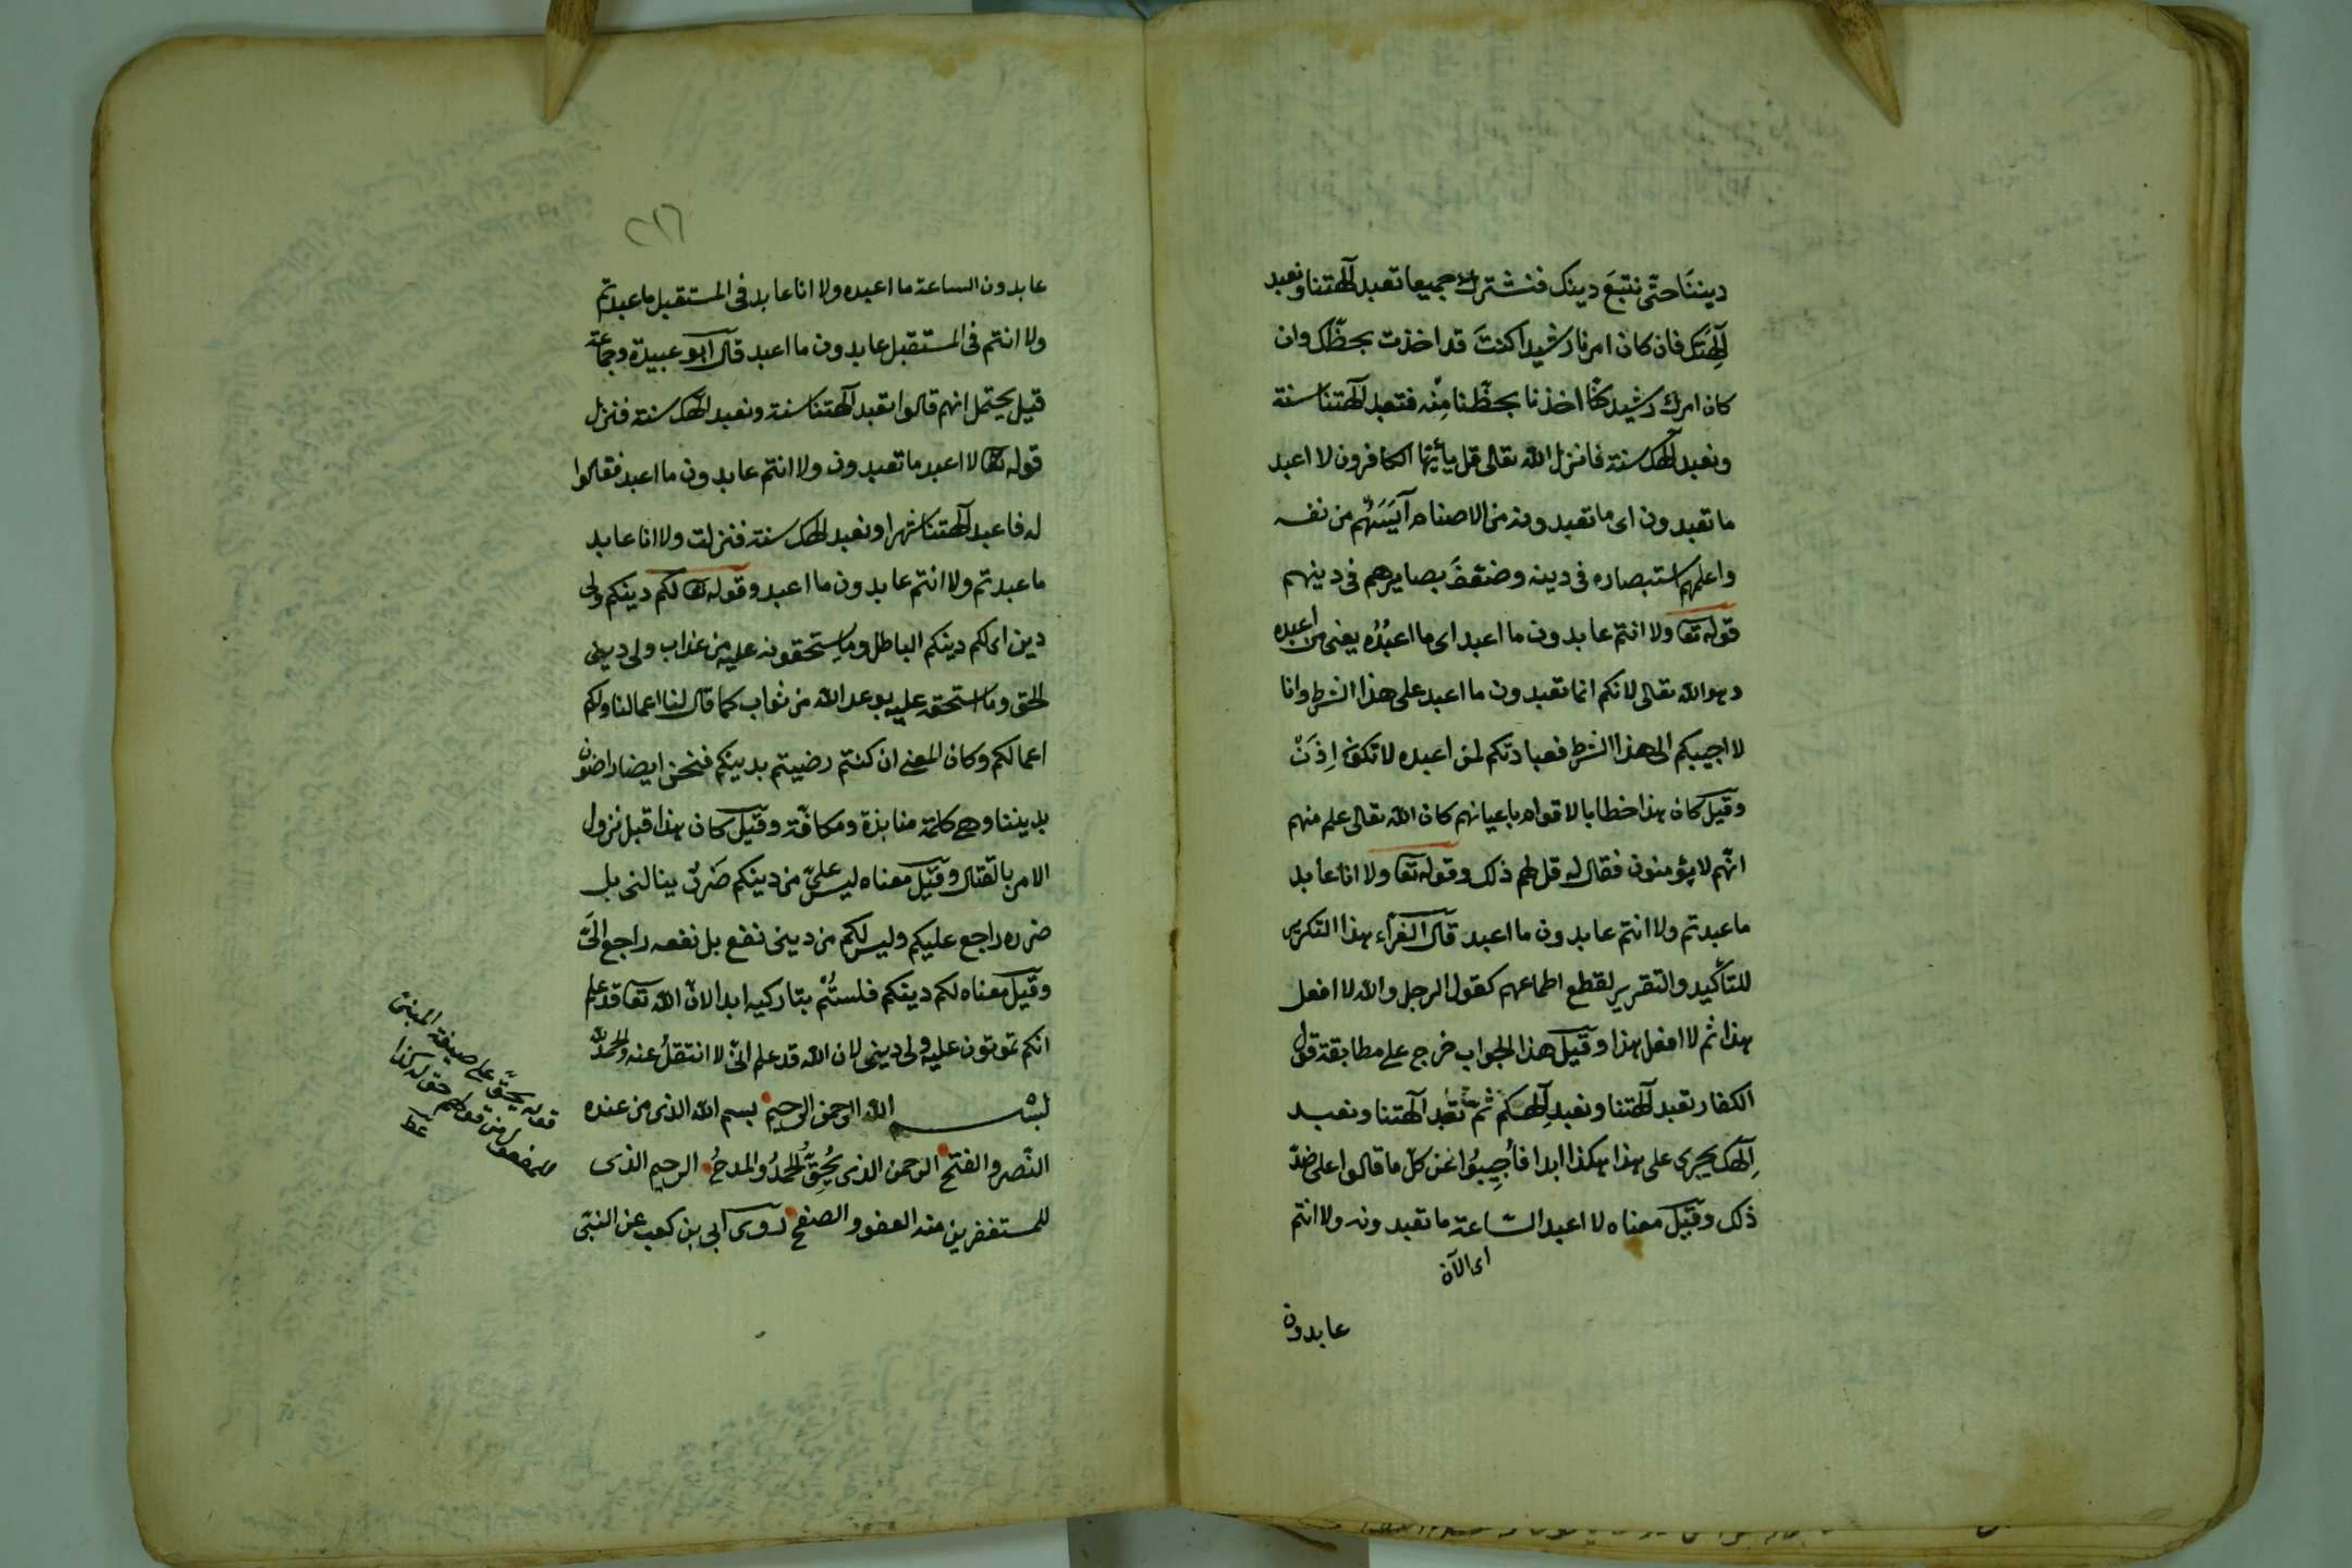 ديننَا حتّى نتبعَ دينك فنشترك جميعا تعبد آلهتنا ونعبد
آلهتك فان كان امرنا رشيدا كنتَ قد اخذت بحظّك وان
كان امرك رشيدا كنّا اخذنا بحظّنا مِنْه فتعبد آلهتنا سنة
ونعبد آلهك سنة فانزل الله تعالى قل يأيّها الكافرون لا اعبد
ما تعبدون اى ما تعبدونه من الاصنام آيَسَهُم من نفسه
واعلمهم استبصاره فى دينه وضعْفَ بصايرهم فى دينهم
قوله تعا ولا انتم عابدون ما اعبد اى ما اعبُدُه يعنى من اعبده
وهو الله تعالى لانكم انما تعبدون ما اعبد على هذا الشرط وانا
لا اجيبكم الى هذا الشرط فعبادتكم لمن اعبده لا تكون اِذَنْ
وقيل كان هذا خطابا لاقوام باعيانهم كان الله تعالى علم منهم
انّهم لا يؤمنون فقال له قل لهم ذلك وقوله تعا ولا انا عابد
ما عبدتم ولا انتم عابدون ما اعبد قال الفرّاء هذا التكرير
للتأكيد والتقرير لقطع اطماعهم كقول الرجل والله لا افعل
هذا ثم لا افعل هذا وقيل هذا الجواب خرج على مطابقة قول
الكفار تعبد آلهتنا ونعبد آلهكم ثم تعبد آلهتنا ونعبد
آلهك يجرى على هذا هكذا ابدا فأُجِيبُوا عن كلّ ما قالوا على ضدّ
ذلك وقيل معناه لا اعبد السّاعة ما تعبدونه ولا انتم
اى الآن
عابدون
٢١٦
عابدون الساعة ما اعبده ولا انا عابد فى المستقبل ما عبدتم
ولا انتم فى المستقبل عابدون ما اعبد قال ابو عبيدة وجماعة
قيل يحتمل انهم قالوا تعبد آلهتنا سنة ونعبد الهك سنة فنزل
قوله تعا لا اعبد ما تعبدون ولا انتم عابدون ما اعبد فقالوا
له فاعبد آلهتنا شهرا ونعبد الهك سنة فنزلت ولا انا عابد
ما عبدتم ولا انتم عابدون ما اعبد وقوله تعا لكم دينكم ولى
دين اى لكم دينكم الباطل وما ستحقونه عليه من عذاب ولى دينى
الحق وما ستحقه عليه بوعد الله من ثواب كما قال لنا اعمالنا ولكم
اعمالكم وكان المعنى ان كنتم رضيتم بدينكم فنحن ايضا راضون
بديننا وهى كلمة منابذة ومكافّة وقيل كان هذا قبل نزول
الامر بالقتال وقيل معناه ليس علىّ من دينكم ضرر ينالنى بل
ضرره راجع عليكم وليس لكم من دينى نفع بل نفعه راجع الىّ
وقيل معناه لكم دينكم فلستُم بتاركيه ابدا لانّ الله تعا قد علم
انكم تموتون عليه ولى دينى لان الله قد علم انّى لا انتقلُ عنه والحمد لله
بسم الله الرحمن الرحيم بسم الله الذى من عنده
النّصر والفتح الرحمن الذى يُحِقّ لهُ الحمدُ والمدحُ الرحيم الذى
للمستغفرين منه العفو والصفح روى ابى بن كعب عن النبى
قوله يحقّ على صيغة المبنى
للمفعول من قولهم حق له كذا